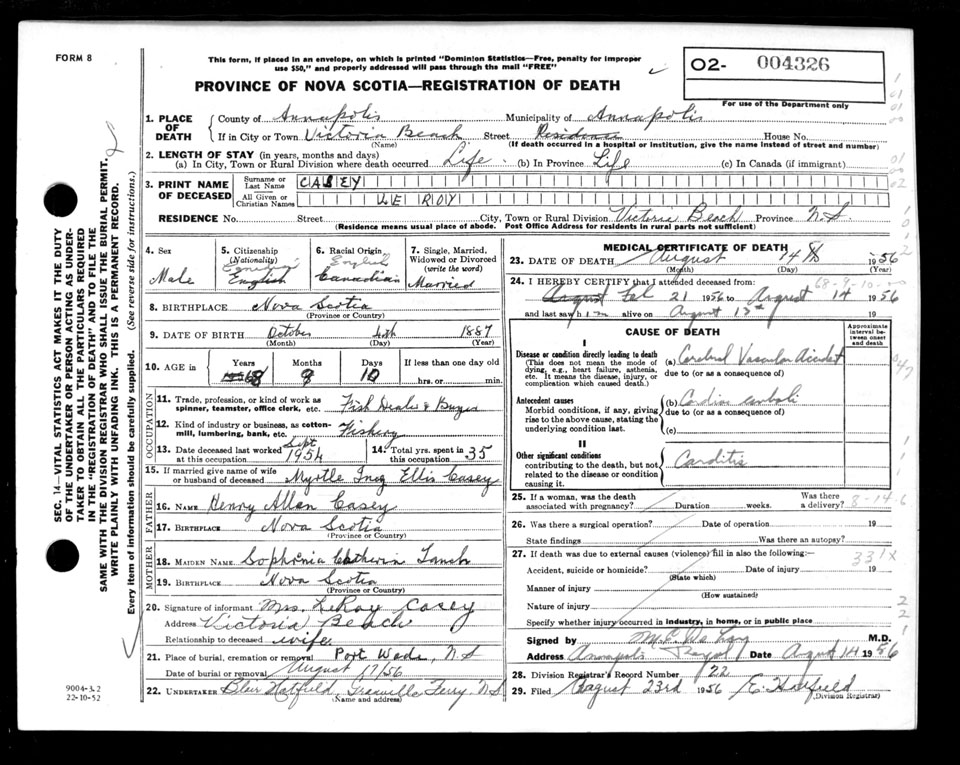 FORM 8
This form, if placed in an envelope, on which is printed "Dominion Statistics—Free, penalty for improper
use $50," and properly addressed will pass through the mail "FREE"
O2- 004326
For use of the Department only
PROVINCE OF NOVA SCOTIA—REGISTRATION OF DEATH
1. PLACE OF DEATH
County of Annapolis Municipality of Annapolis
If in City or Town Victoria Beach Street Residence House No.
(Name) (If death occurred in a hospital or institution, give the name instead of street and number)
2. LENGTH OF STAY (in years, months and days)
(a) In City, Town or Rural Division where death occurred Life. (b) In Province Life (c) In Canada (if immigrant)
3. PRINT NAME OF DECEASED
Surname or Last Name CASEY
All Given or Christian Names LE ROY
RESIDENCE No. Street City, Town or Rural Division Victoria Beach Province N.S.
(Residence means usual place of abode. Post Office Address for residents in rural parts not sufficient)
4. Sex Male
5. Citizenship (Nationality) Canadian English
6. Racial Origin English Canadian
7. Single, Married, Widowed or Divorced (write the word) Married
8. BIRTHPLACE Nova Scotia
(Province or Country)
9. DATE OF BIRTH October 4th 1887
(Month) (Day) (Year)
10. AGE in Years 68 Months Days 10 If less than one day old
hrs. or min.
OCCUPATION
11. Trade, profession, or kind of work as spinner, teamster, office clerk, etc. Fish Dealer & Buyer
12. Kind of industry or business, as cotton-mill, lumbering, bank, etc. Fishery
13. Date deceased last worked at this occupation Sept 1954
14. Total yrs. spent in this occupation 35
15. If married give name of wife or husband of deceased Myrtle Inez Ellis Casey
FATHER
16. NAME Henry Allan Casey
17. BIRTHPLACE Nova Scotia
(Province or Country)
MOTHER
18. MAIDEN NAME Sophronia
19. BIRTHPLACE Nova Scotia
(Province or Country)
20. Signature of informant Mrs. LeRoy Casey
Address Victoria Beach
Relationship to deceased wife
21. Place of burial, cremation or removal Port Wade, N.S
Date of burial or removal August 17/56
22. UNDERTAKER Blair Hatfield, Granville Ferry, N.S
(Name and address)
MEDICAL CERTIFICATE OF DEATH
23. DATE OF DEATH August 14th 1956
(Month) (Day) (Year)
24. I HEREBY CERTIFY that I attended deceased from:
August Feb 21 1956 to August 14 1956
and last saw him alive on August 13th 19
CAUSE OF DEATH
Approximate interval between onset and death
I
Disease or condition directly leading to death
(This does not mean the mode of dying, e.g., heart failure, asthenia, etc. It means the disease, injury, or complication which caused death.)
(a) Cerebral Vascular Accident
due to (or as a consequence of)
Antecedent causes
Morbid conditions, if any, giving rise to the above cause, stating the underlying condition last.
(b) Cardiac emboli
due to (or as a consequence of)
(c)
II
Other significant conditions
contributing to the death, but not related to the disease or condition causing it.
Carditis
25. If a woman, was the death associated with pregnancy? Duration weeks. Was there a delivery? 8-14-6
26. Was there a surgical operation? Date of operation 19
State findings Was there an autopsy?
27. If death was due to external causes (violence) fill in also the following:
331X
Accident, suicide or homicide? Date of injury 19
(State which)
Manner of injury
(How sustained)
Nature of injury
Specify whether injury occurred in industry, in home, or in public place
Signed by M.D.
Address Annapolis Royal Date August 14 1956
28. Division Registrar's Record Number 22
29. Filed August 23rd 1956 E. Hatfield
(Division Registrar)
SEC. 14—VITAL STATISTICS ACT MAKES IT THE DUTY
OF THE UNDERTAKER OR PERSON ACTING AS UNDER-
TAKER TO OBTAIN ALL THE PARTICULARS REQUIRED
IN THE "REGISTRATION OF DEATH" AND TO FILE THE
SAME WITH THE DIVISION REGISTRAR WHO SHALL ISSUE THE BURIAL PERMIT.
WRITE PLAINLY WITH UNFADING INK. THIS IS A PERMANENT RECORD.
Every item of information should be carefully supplied. (See reverse side for instructions.)
9004-3.2
22-10-52